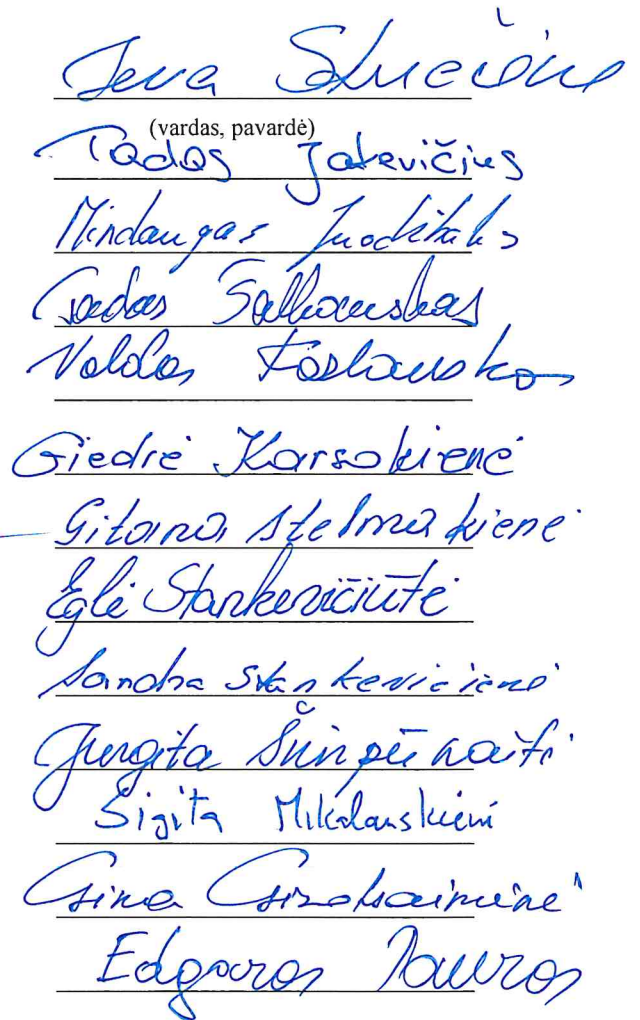 Ieva
(vardas, pavardė)
Tadas Jatevičius
Mindaugas Juodžbalis
Tadas Šalkauskas
Valdas Kazlauskas
Giedrė Karsokienė
Gitana Stelmakienė
Eglė Stankevičiūtė
Sandra Stankevičienė
Jurgita
Sigita Mikalauskienė
Gina
Edgaras Tauras